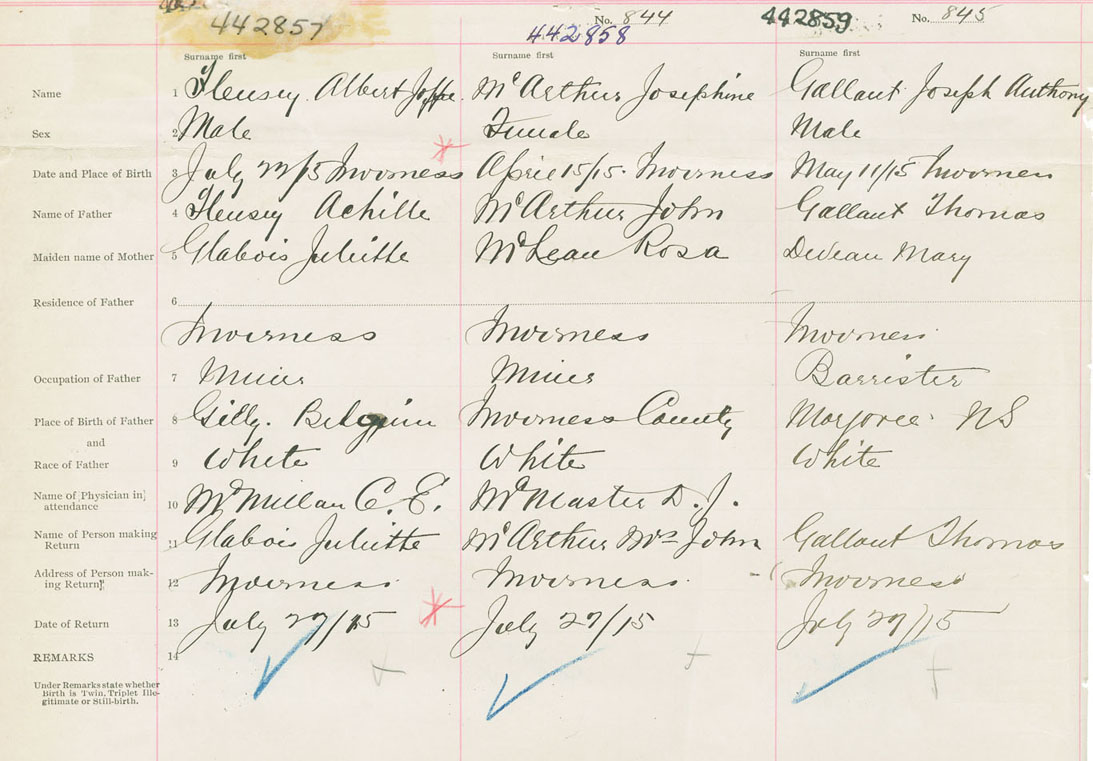 442857
No. 844
442858
442859
No. 845
Surname first Surname first Surname first
Name 1 Flensey Albert McArthur Josephine Gallant Joseph Anthony
Sex 2 Male Female Male
Date and Place of Birth 3 July 22/15 Inverness April 15/15. Inverness May 11/15 Inverness
Name of Father 4 Flensey Achille McArthur John Gallant Thomas
Maiden name of Mother 5 Glabois Juliette McLean Rosa Deveau Mary
Residence of Father 6
Inverness Inverness Inverness
Occupation of Father 7 Miner Miner Barrister
Place of Birth of Father 8 Gilly. Belgium Inverness County Margaree NS
and
Race of Father 9 White White White
Name of Physician in attendance 10 McMillan C. E. McMaster D. J.
Name of Person making Return 11 Glabois Juliette McArthur Mrs John Gallant Thomas
Address of Person making Return 12 Inverness Inverness Inverness
Date of Return 13 July 27/15 July 27/15 July 29/15
REMARKS 14
Under Remarks state whether
Birth is Twin, Triplet Ille-
gitimate or Still-birth.